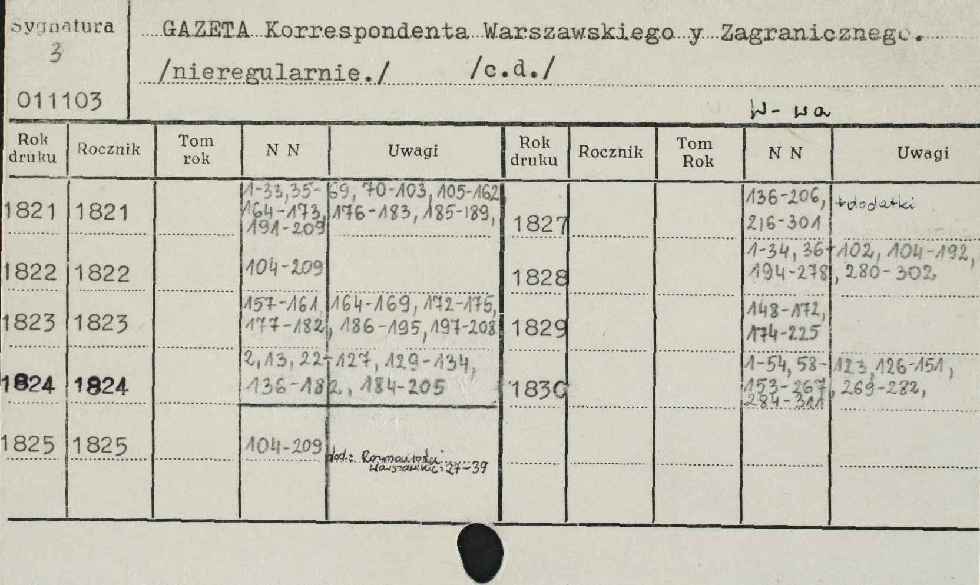 Sygnatura
3
011103
GAZETA Korrespondenta Warszawskiego y Zagranicznego.
/nieregularnie./ /c.d./
W-wa
Rok druku Rocznik Tom rok N N Uwagi Rok druku Rocznik Tom Rok N N Uwagi
1821 1821 1-33,35-69, 70-103, 105-162
164-173, 176-183, 185-189,
191-209
1822 1822 104-209
1823 1823 157-161, 164-169, 172-175,
177-182, 186-195, 197-208
1824 1824 2,13, 22-127, 129-134,
136-182, 184-205
1825 1825 104-209
dod.: Rozmaitości
Warszawskie: 27-39
1827 136-206, +dodatki
216-301
1828 1-34, 36-102, 104-192,
194-278, 280-302,
1829 148-172,
174-225
1830 1-54, 58-123, 126-151,
153-267, 269-282,
284-311